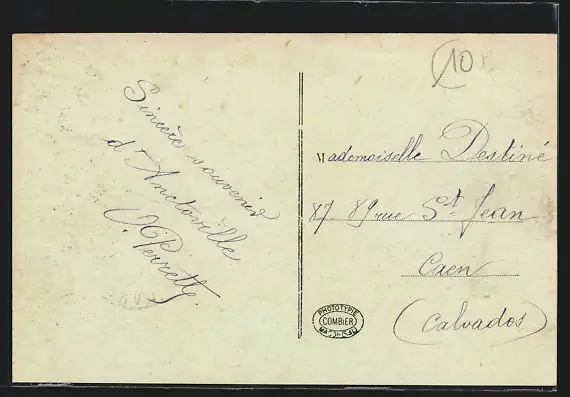 10
Sincère souvenir
d'Anctoville
Mademoiselle Destiné
87 89 rue St Jean
Caen
(Calvados)
PHOTOTYPIE
COMBIER
MACON